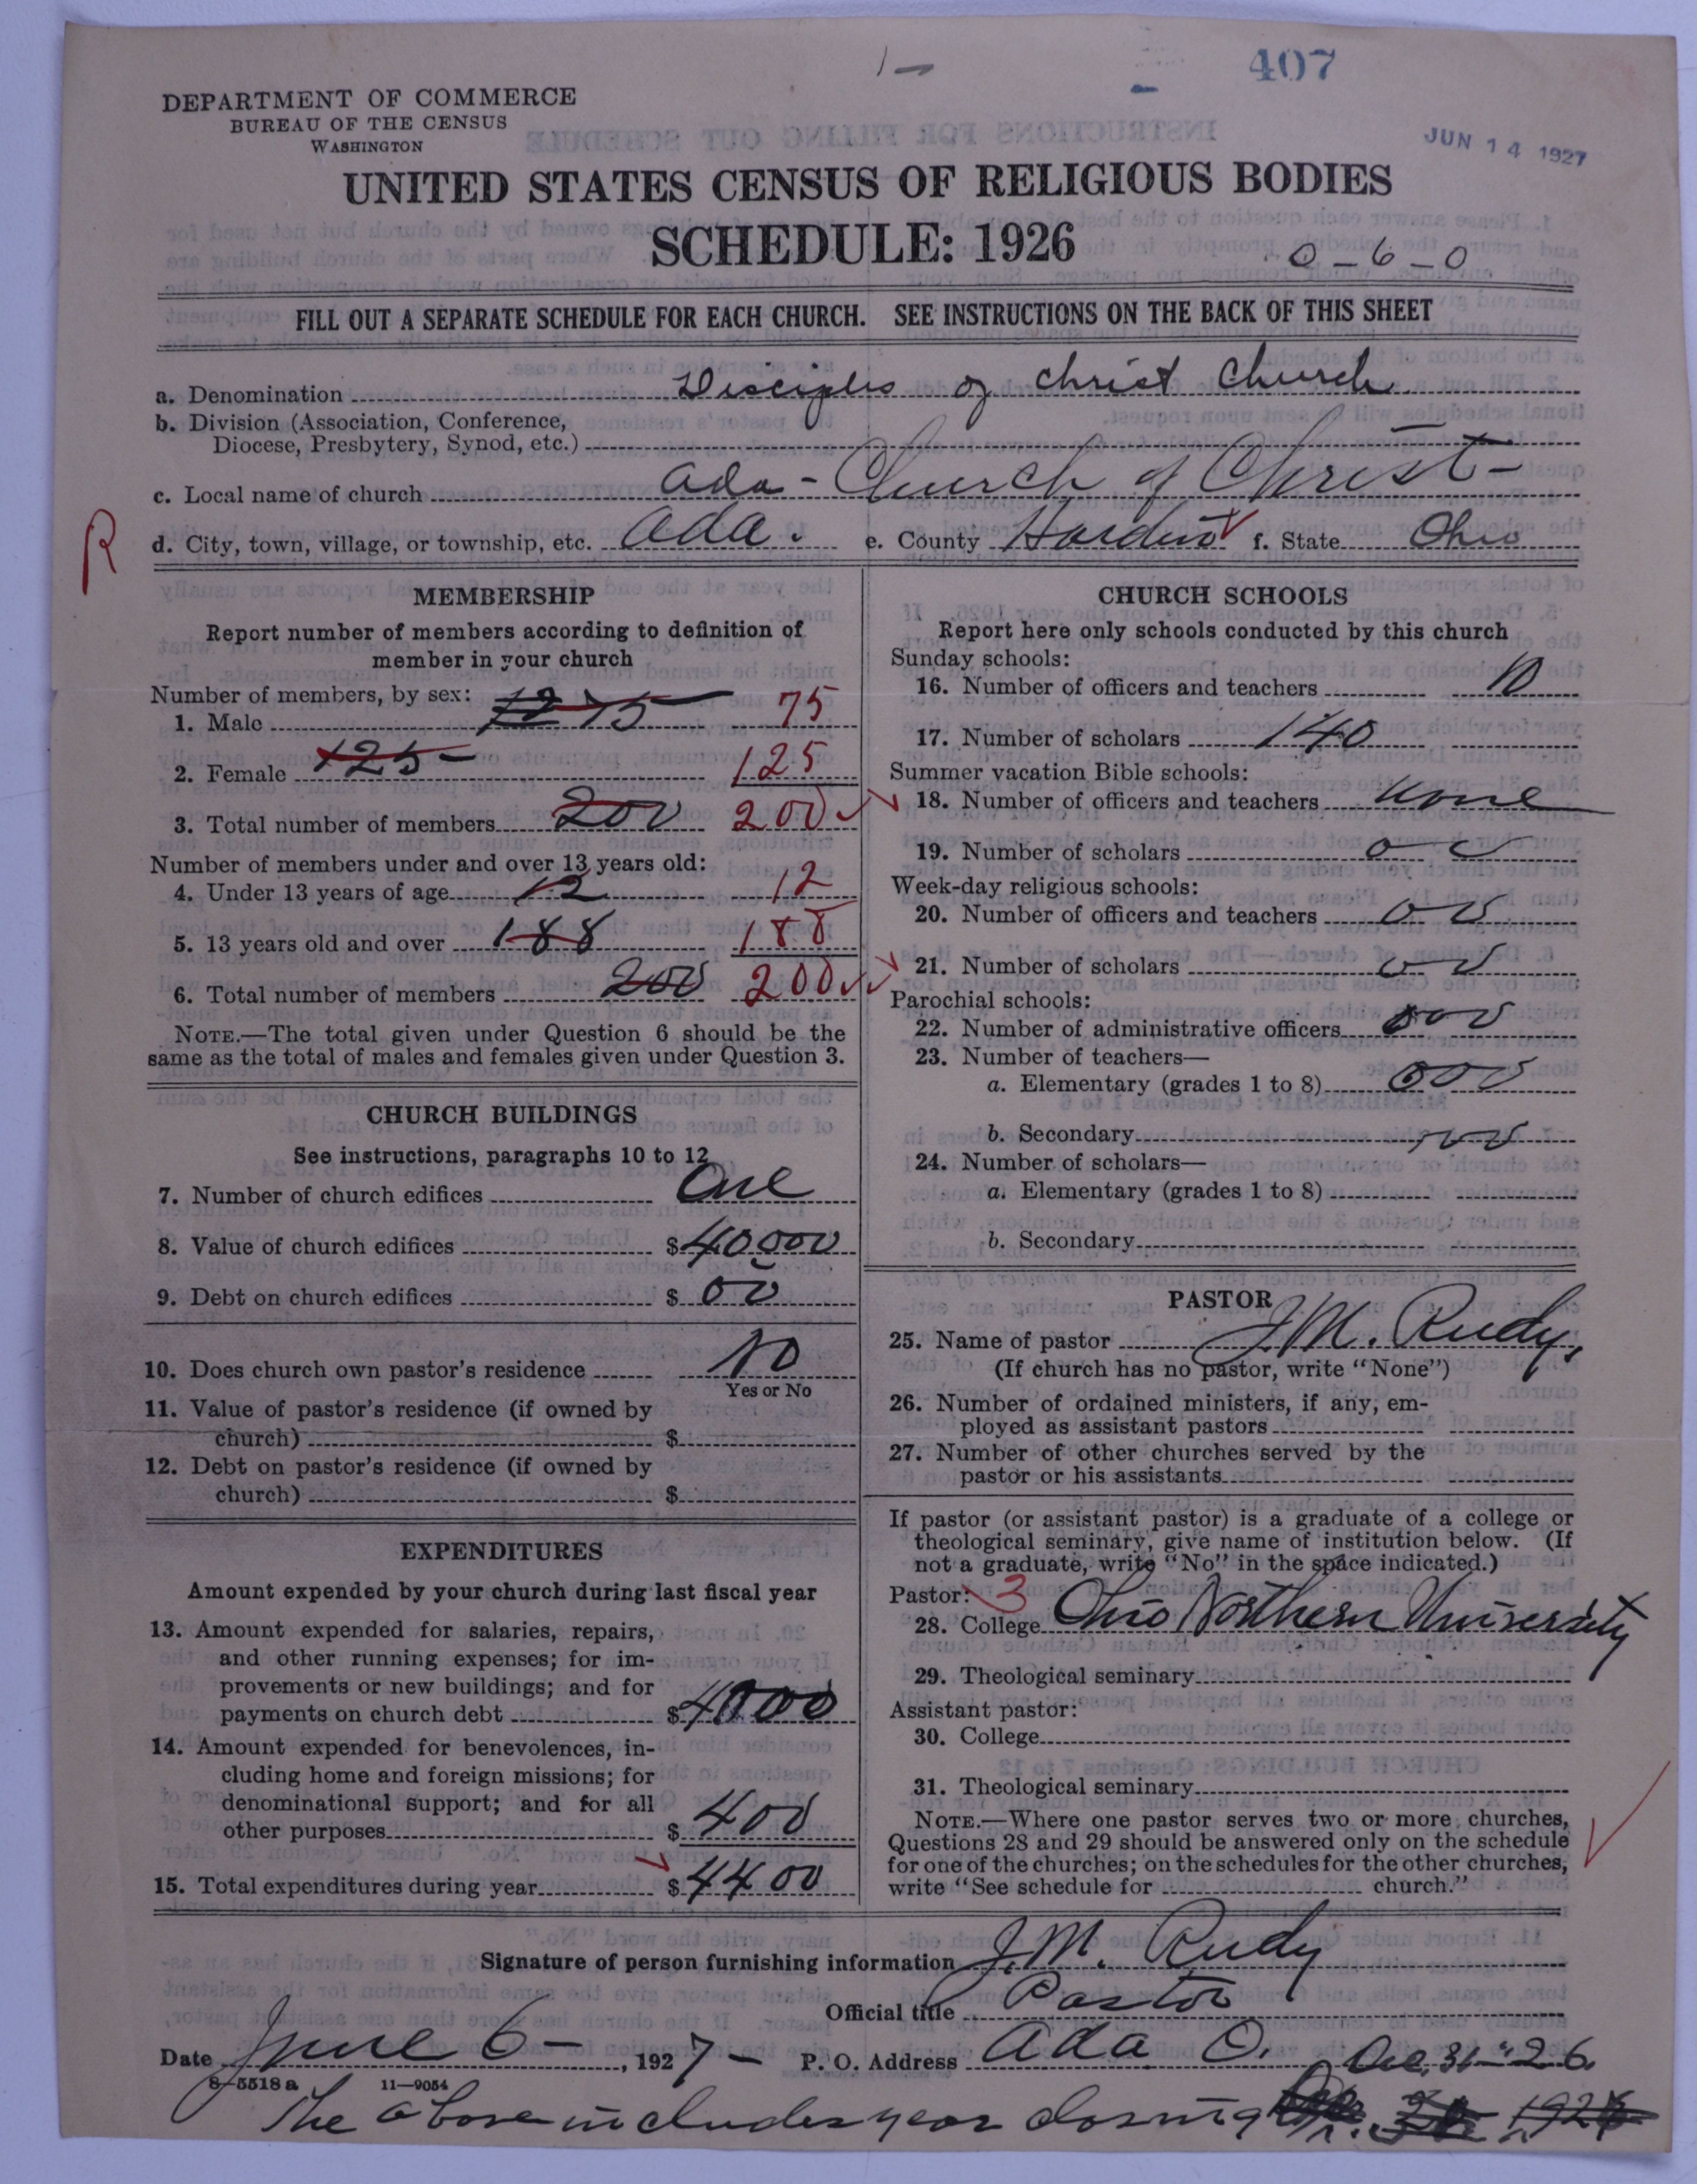 1-
407
DEPARTMENT OF COMMERCE
BUREAU OF THE CENSUS
WASHINGTON
JUN 14 1927
UNITED STATES CENSUS OF RELIGIOUS BODIES
SCHEDULE: 1926
0-6-0
FILL OUT A SEPARATE SCHEDULE FOR EACH CHURCH. SEE INSTRUCTIONS ON THE BACK OF THIS SHEET
a. Denomination Disciples of Christ Church
b. Division (Association, Conference,
Diocese, Presbytery, Synod, etc.)
c. Local name of church Ada - Church of Christ -
R
d. City, town, village, or township, etc. Ada. e. County Hardin f. State Ohio
MEMBERSHIP
Report number of members according to definition of
member in your church
Number of members, by sex:
1. Male 75 75
2. Female 125 125
3. Total number of members 200 200
Number of members under and over 13 years old:
4. Under 13 years of age 12 12
5. 13 years old and over 188 188
6. Total number of members 200 200
NOTE.—The total given under Question 6 should be the
same as the total of males and females given under Question 3.
CHURCH BUILDINGS
See instructions, paragraphs 10 to 12
7. Number of church edifices One
8. Value of church edifices $40000
9. Debt on church edifices $ 00
10. Does church own pastor's residence No
Yes or No
11. Value of pastor's residence (if owned by
church) $
12. Debt on pastor's residence (if owned by
church) $
EXPENDITURES
Amount expended by your church during last fiscal year
13. Amount expended for salaries, repairs,
and other running expenses; for im-
provements or new buildings; and for
payments on church debt $4000
14. Amount expended for benevolences, in-
cluding home and foreign missions; for
denominational support; and for all
other purposes $ 400
15. Total expenditures during year $4400
CHURCH SCHOOLS
Report here only schools conducted by this church
Sunday schools:
16. Number of officers and teachers 10
17. Number of scholars 140
Summer vacation Bible schools:
18. Number of officers and teachers none
19. Number of scholars 0 0
Week-day religious schools:
20. Number of officers and teachers 0 0
21. Number of scholars 0 0
Parochial schools:
22. Number of administrative officers 000
23. Number of teachers—
a. Elementary (grades 1 to 8) 000
b. Secondary 000
24. Number of scholars—
a. Elementary (grades 1 to 8)
b. Secondary
PASTOR
25. Name of pastor J.M. Rudy.
(If church has no pastor, write "None")
26. Number of ordained ministers, if any, em-
ployed as assistant pastors
27. Number of other churches served by the
pastor or his assistants
If pastor (or assistant pastor) is a graduate of a college or
theological seminary, give name of institution below. (If
not a graduate, write "No" in the space indicated.)
Pastor: 3
28. College Ohio Northern University
29. Theological seminary
Assistant pastor:
30. College
31. Theological seminary
NOTE.—Where one pastor serves two or more churches,
Questions 28 and 29 should be answered only on the schedule
for one of the churches; on the schedules for the other churches,
write "See schedule for church."
Signature of person furnishing information J.M. Rudy
Official title Pastor
Date June 6-, 1927- P. O. Address Ada O. Dec. 31-26.
8-5518a 11-9054
The above includes year closing